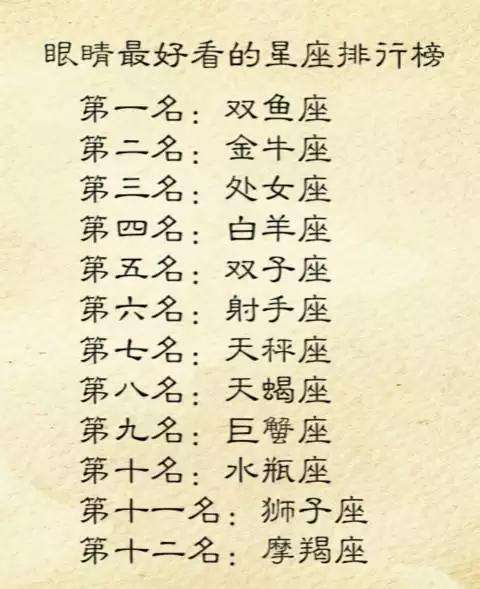 眼睛最好看的星座排行榜
第一名：双鱼座
第二名：金牛座
第三名：处女座
第四名：白羊座
第五名：双子座
第六名：射手座
第七名：天秤座
第八名：天蝎座
第九名：巨蟹座
第十名：水瓶座
第十一名：狮子座
第十二名：摩羯座